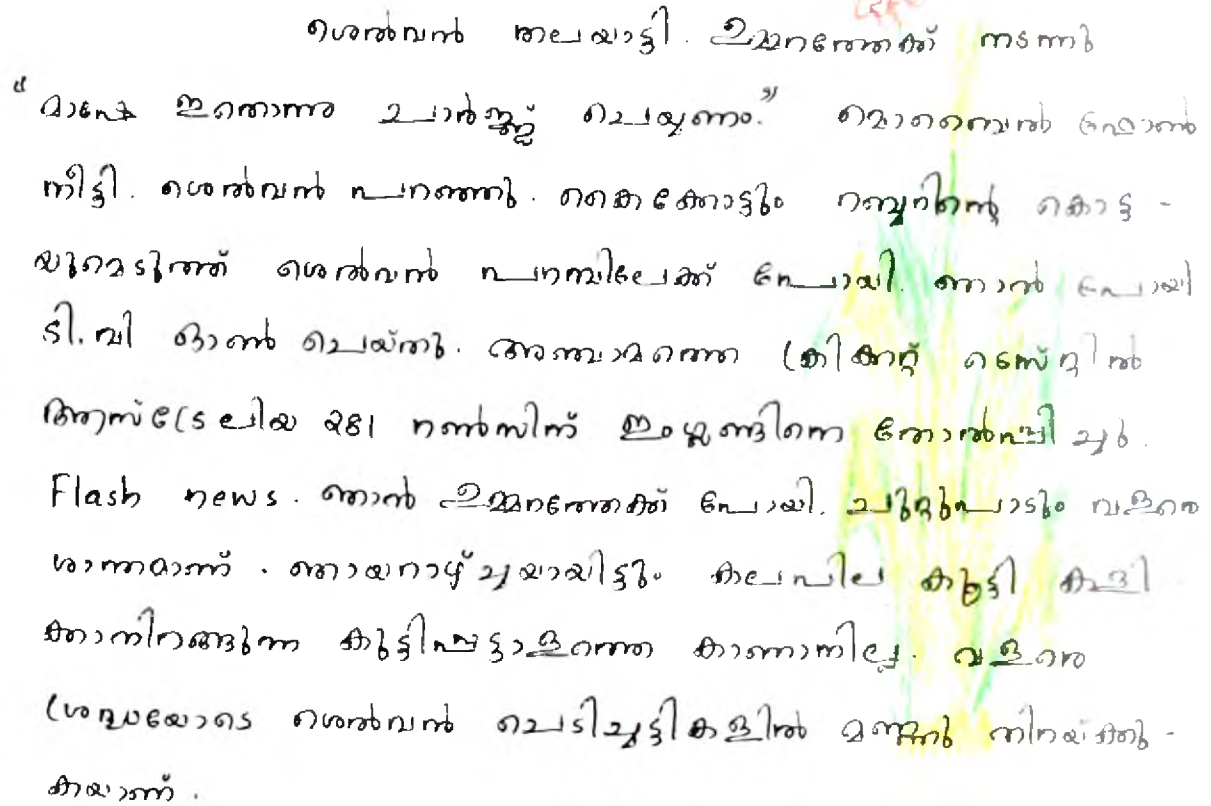 ശെൽവൻ തലയാട്ടി. ഉമ്മറത്തേക്ക് നടന്നു
"മാഷേ ഇതൊന്നു ചാർജ്ജ് ചെയ്യണം." മൊബൈൽ ഫോൺ
നീട്ടി. ശെൽവൻ പറഞ്ഞു. കൈക്കോട്ടും റബ്ബറിന്റെ കൊട്ട -
യുമെടുത്ത് ശെൽവൻ പറമ്പിലേക്ക് പോയി. ഞാൻ പോയി
ടി.വി ഓൺ ചെയ്തു. അഞ്ചാമത്തെ ക്രിക്കറ്റ് ടെസ്റ്റിൽ
ആസ്ട്രേലിയ 281 റൺസിന് ഇംഗ്ലണ്ടിനെ തോൽപ്പിച്ചു.
Flash news. ഞാൻ ഉമ്മറത്തേക്ക് പോയി. ചുറ്റുപാടും വളരെ
ശാന്തമാണ്. ഞായറാഴ്ചയായിട്ടും കലപില കൂട്ടി കളി
ക്കാനിറങ്ങുന്ന കുട്ടിപ്പട്ടാളത്തെ കാണാനില്ല. വളരെ
ശ്രദ്ധയോടെ ശെൽവൻ ചെടിച്ചട്ടികളിൽ മണ്ണു നിറയ്ക്കു -
കയാണ്.